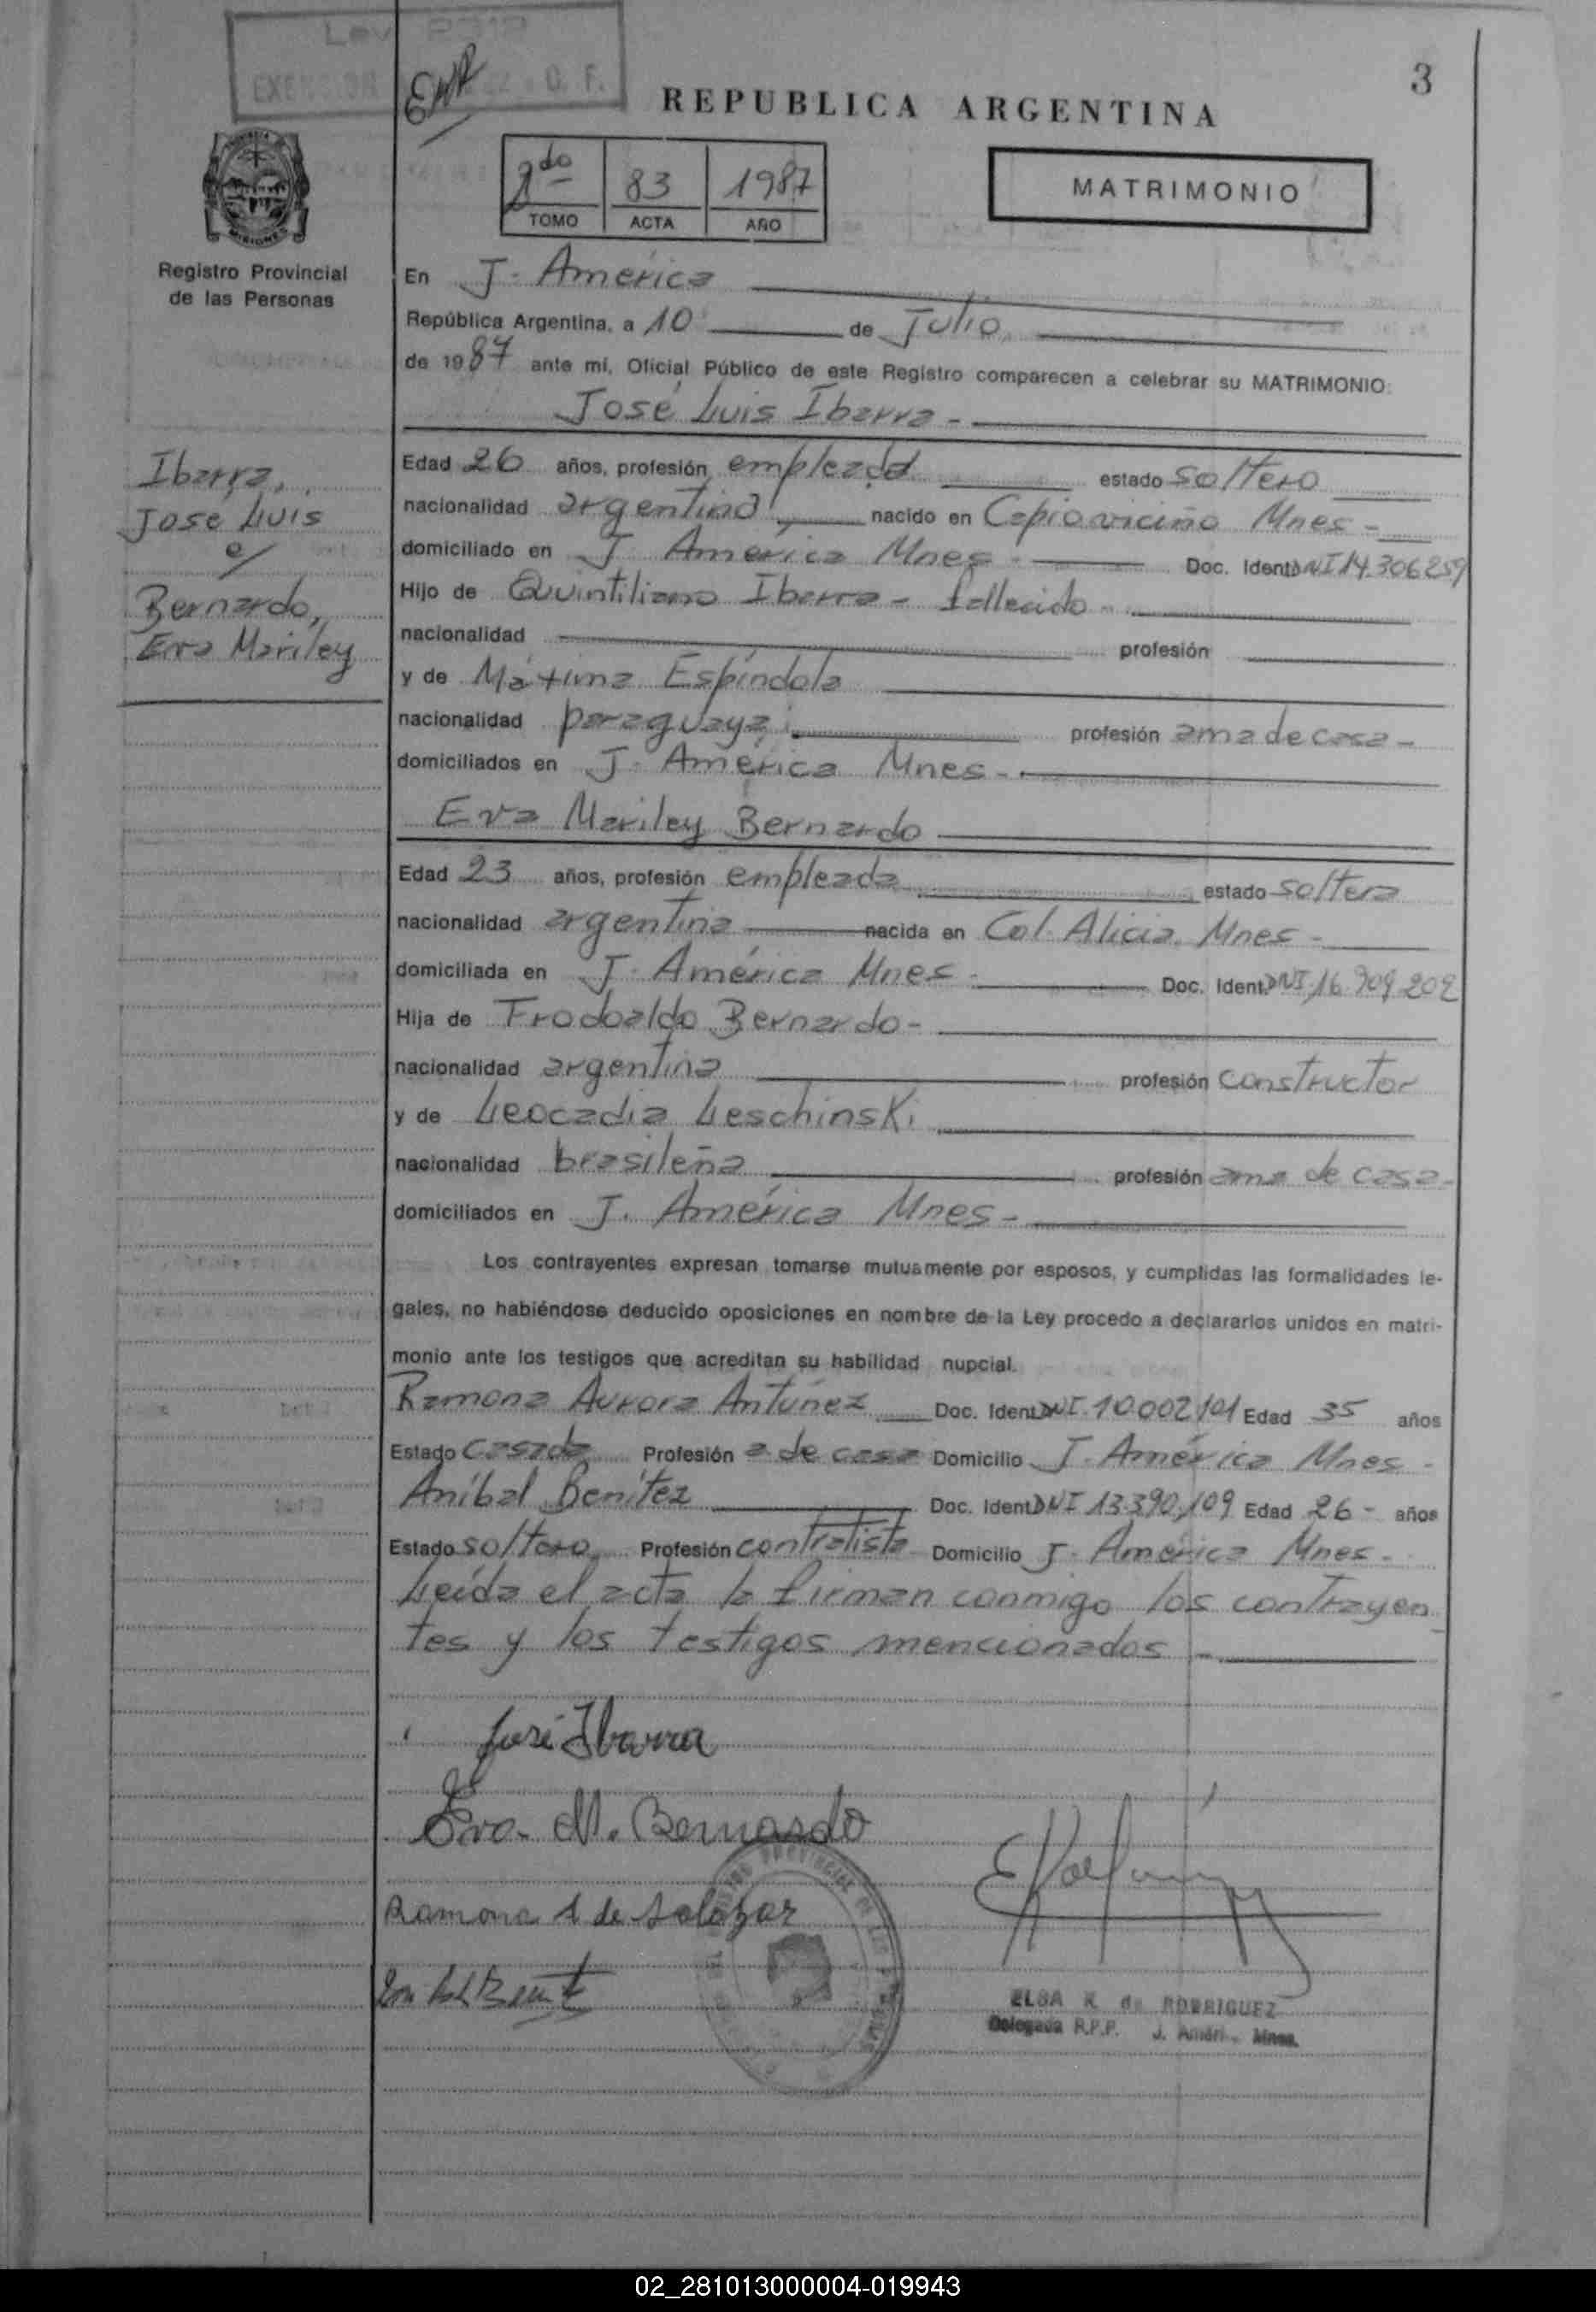 Ley
3
REPUBLICA ARGENTINA
2do 83 1987
TOMO ACTA AÑO
MATRIMONIO
MISIONES
Registro Provincial
de las Personas
En J. América
República Argentina, a 10 de Julio
de 1987 ante mí, Oficial Público de este Registro comparecen a celebrar su MATRIMONIO:
José Luis Ibarra -
Ibarra,
Jose Luis
c/
Bernardo,
Eva Mariley
Edad 26 años, profesión empleado estado soltero
nacionalidad argentina nacido en Capioviciño Mnes -
domiciliado en J. América Mnes - Doc. Ident. DNI 14.306.259
Hijo de Quintiliano Ibarra - fallecido -
nacionalidad profesión
y de Máxima Espíndola
nacionalidad paraguaya profesión ama de casa -
domiciliados en J. América Mnes -
Eva Mariley Bernardo
Edad 23 años, profesión empleada estado soltera
nacionalidad argentina nacida en Col. Alicia Mnes -
domiciliada en J. América Mnes - Doc. Ident. DNI 16.909.202
Hija de Frodoaldo Bernardo -
nacionalidad argentina profesión constructor
y de Leocadia Leschinski
nacionalidad brasileña profesión ama de casa -
domiciliados en J. América Mnes -
Los contrayentes expresan tomarse mutuamente por esposos, y cumplidas las formalidades le-
gales, no habiéndose deducido oposiciones en nombre de la Ley procedo a declararlos unidos en matri-
monio ante los testigos que acreditan su habilidad nupcial.
Ramona Aurora Antúnez Doc. Ident. DNI 10.002.101 Edad 35 años
Estado casada Profesión a de casa Domicilio J. América Mnes -
Aníbal Benítez Doc. Ident. DNI 13.390.109 Edad 26 - años
Estado soltero Profesión contratista Domicilio J. América Mnes -
Leída el acta la firman conmigo los contrayen
tes y los testigos mencionados -
José Ibarra
Eva M. Bernardo
Ramona A de Salazar
ELSA K. de RODRIGUEZ
Delegada R.P.P. J. Améri. Mnes.
02_281013000004-019943